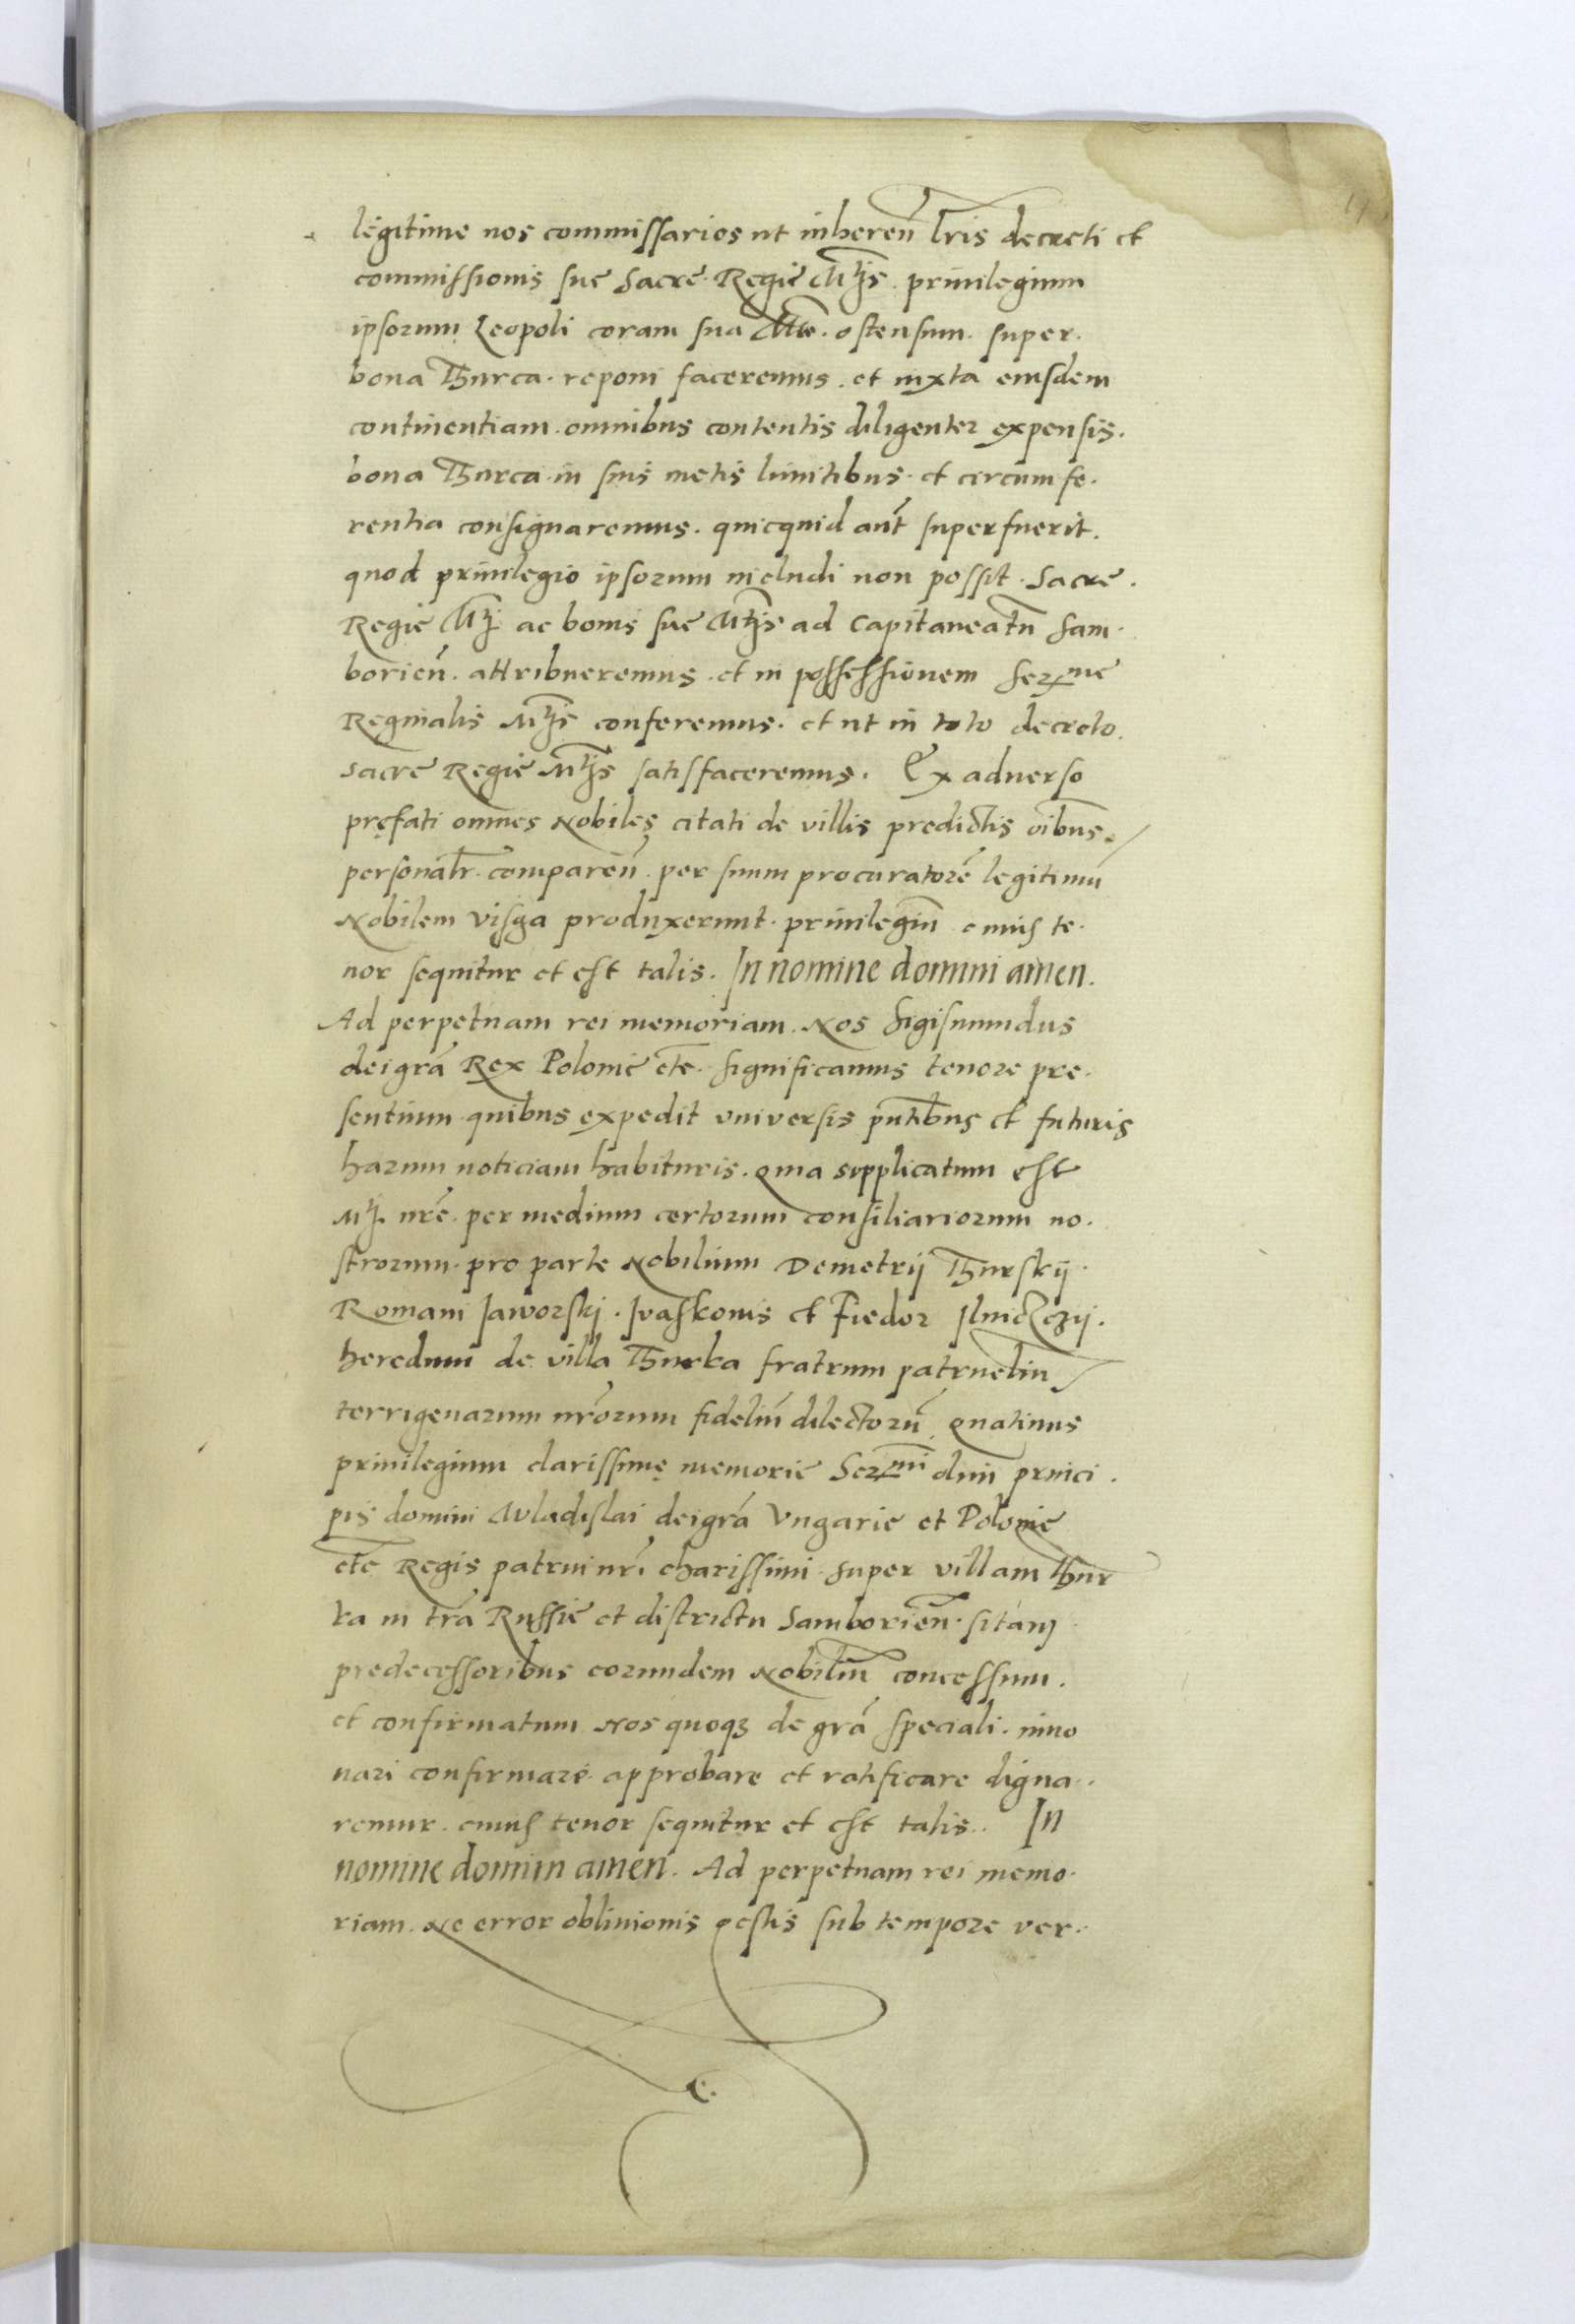 legitime nos commissarios ut inhereñ lr̃is decreti et
commissionis sue Sacre Regie Mtis. privilegium
ipsorum Leopoli coram sua Mte. ostensum. super.
bona Thurca. reponi faceremus. et iuxta eiusdem
continentiam. omnibus contentis diligenter expensis.
bona Thurca in suis metis limitibus. et circumfe.
rentia consignaremus. quicquid aut̃ superfuerit.
quod privilegio ipsorum includi non possit. Sacre.
Regie Mti ac bonis sue Mtis ad Capitaneatũ Sam.
borieñ. attribueremus. et in possessionem Serme
Reginalis Mtis conferemus. et ut in toto decreto.
Sacre Regie Mtis satisfaceremus. Ex adverso
pręfati omnes Nobiles citati de villis predictis oĩbus.
personalr̃. compareñ. per suum procuratorẽ legitimũ
Nobilem Visga produxerunt. privilegiũ cuius te.
nor sequitur et est talis. In nomine domini amen.
Ad perpetuam rei memoriam. Nos Sigismundus
dei grã Rex Polonie etc̃. significamus tenore pre.
sentium quibus expedit universis pñtibus et futuris
harum noticiam habituris. Quia supplicatum est
Mti. nrẽ. per medium certorum consiliariorum no.
strorum. pro parte Nobilium Demetrij Thurskij.
Romani Jaworskj. Ivaskonis et Fiedor Jlniczkij.
heredum de villa Thurka fratrum patrueliũ
terrigenarum nr̃orum fideliũ dilectorũ Quatinus
privilegium clarissimę memorie Sermi dnĩ princi.
pis domini Wladislai dei grã Vngarie et Polonie
etc̃ Regis patrui nrĩ charissimi super villam Thur
ka in trã Russie et districtu Samborieñ. sitam
predecessoribus eorundem Nobiliũ concessum.
et confirmatum Nos quoq3 de grã speciali. inno
vari confirmare. approbare et ratificare digna.
remur. cuius tenor sequitur et est talis.. In
nomine domini amen. Ad perpetuam rei memo.
riam. Ne error oblivionis gestis sub tempore ver.